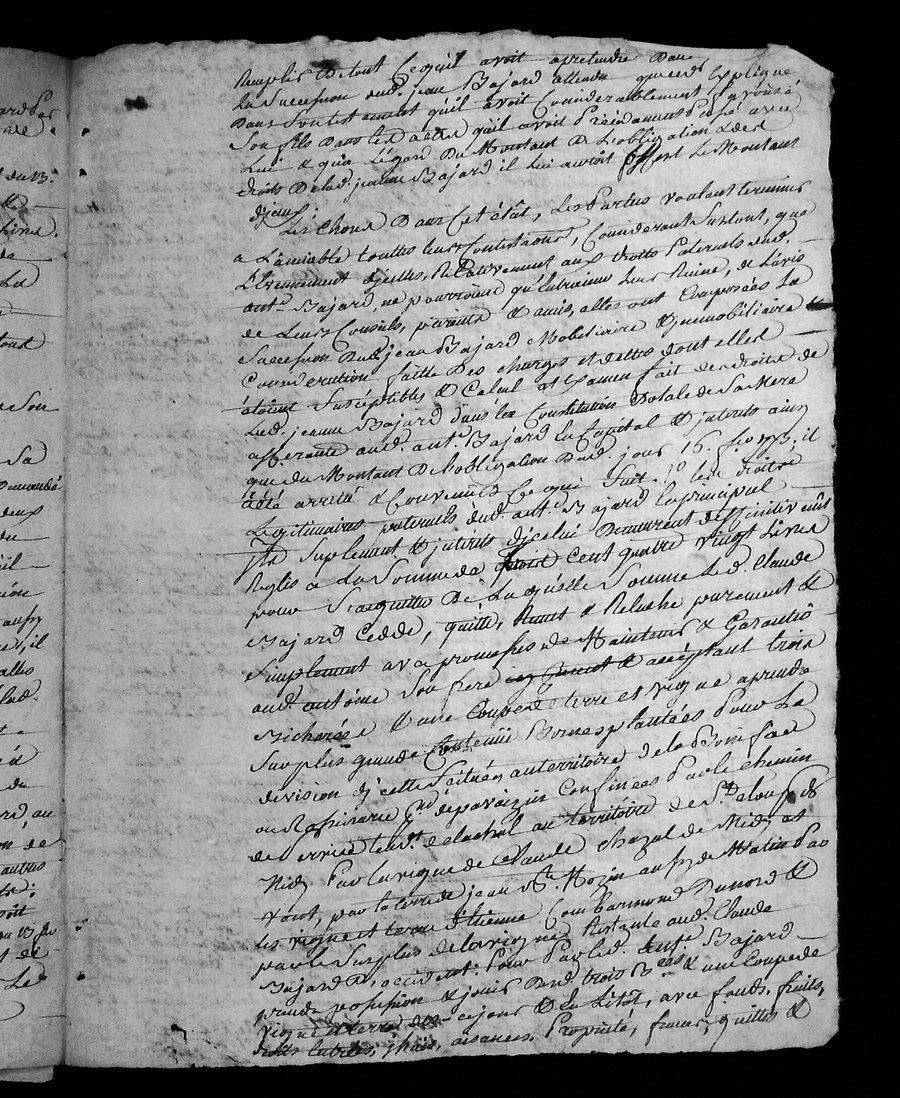 Remplis de tout ce qu'il avoit a pretendre dans
La Succession dud. jean Bajard attendu que ced. Explique
Dans son testament qu'il avoit Considerablement avantagé
Son fils Dans les actes qu'il avoit Précédament Passé avec
Lui & qu'a L'égard Du Montant de L'obligation & des
droits De lad. jeanne Bajard il Lui auroit offert Le Montant
d'jceux;
Les choses Dans Cet état, Les Parties voulant terminer
a L'amiable touttes leurs Contestations, Considerant Surtout, que
L'Evennement d'jcelles, Relativement aux droits Paternels dud.
ant.e Bajard, ne pourroient qu'Entrainer Leur Ruine, de L'avis
de Leurs Conseils, parents & amis, elles ont Composées La
Succession Dud. jean Bajard Mobiliaire & jmmobiliaire &
Consideration faitte Des charges et dettes dont elles
étoient Susceptibles & Calcul et Examen fait des droits de
Lad. jeanne Bajard dans la Constitution Dotale de Sa Mere
afferante aud. ant.e Bajard En Capital & jnterets ainsy
que du Montant De L'obligation Dud. jour 16. 1773. il
a été arretté & Convenu Ce qui Suit. 1.° les droits
Legitimaires paternels dud. ant.e Bajard En principal
Suplement & jnterets d'jcelui Demeurent deffinitivement
Reglés a La Somme de Cent quatre vingt Livres
pour S'acquitter De Laquelle Somme Led. Claude
Bajard Cedde, quitte, Remet & Relache purement &
Simplement avec promesses de Maintenir & Garantir
aud. antoine Son frere & acceptant trois
Bicherées & une Coupe de terre et vigne a prendre
Sur plus grande Contenue Bornes plantées Pour La
division d'jcelle Scituées au territoire de la Bonn
ou Rossiniere de pavaizin Confinées Par le chemin
de Service tend.t de lachal au territoire de
Midy Par La vigne de Claude chazal de Midy et
vent, par la terre de jean Bte. Mozin aussy de Matin Par
les vigne et terre d'Etienne Combarmond Du nord &
par le Surplus de la vigne Restante aud. Claude
Bajard D'occident; Pour Par led. ant.e Bajard
prendre possession & jouir Dud. trois B.ées & une Coupe de
vigne & terre des-a-jour & , avec fonds, fruits,
, aisances, Propriété, francs, quittes &